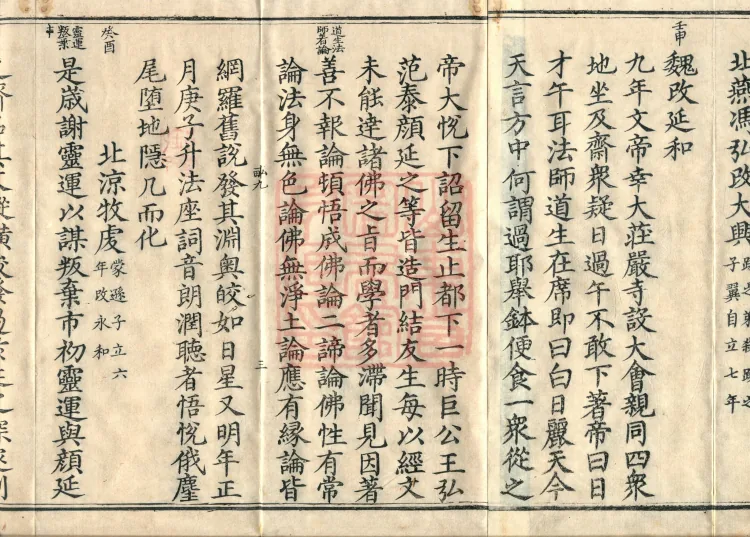 北燕馮弘改大興
子翼自立七年
壬申
魏改延和
九年文帝幸大莊嚴寺設大會親同四衆
地坐及齋衆疑日過午不敢下著帝曰日
才午耳法師道生在席即曰白日麗天今
天言方中何謂過耶舉鉢便食一衆從之
帝大悅下詔留生止都下一時巨公王弘
范泰顏延之等皆造門結友生每以經文
未能達諸佛之旨而學者多滯聞見因著
道生法
師著論
善不報論頓悟成佛論二諦論佛性有常
論法身無色論佛無淨土論應有緣論皆
三
網羅舊說發其淵奧皎如日星又明年正
月庚子升法座詞音朗潤聽者悟悅俄麈
尾墮地隱几而化
癸酉
北涼牧虔
蒙遜子立六
年改永和
靈運
叛棄
市
是歲謝靈運以謀叛棄市初靈運與顏延